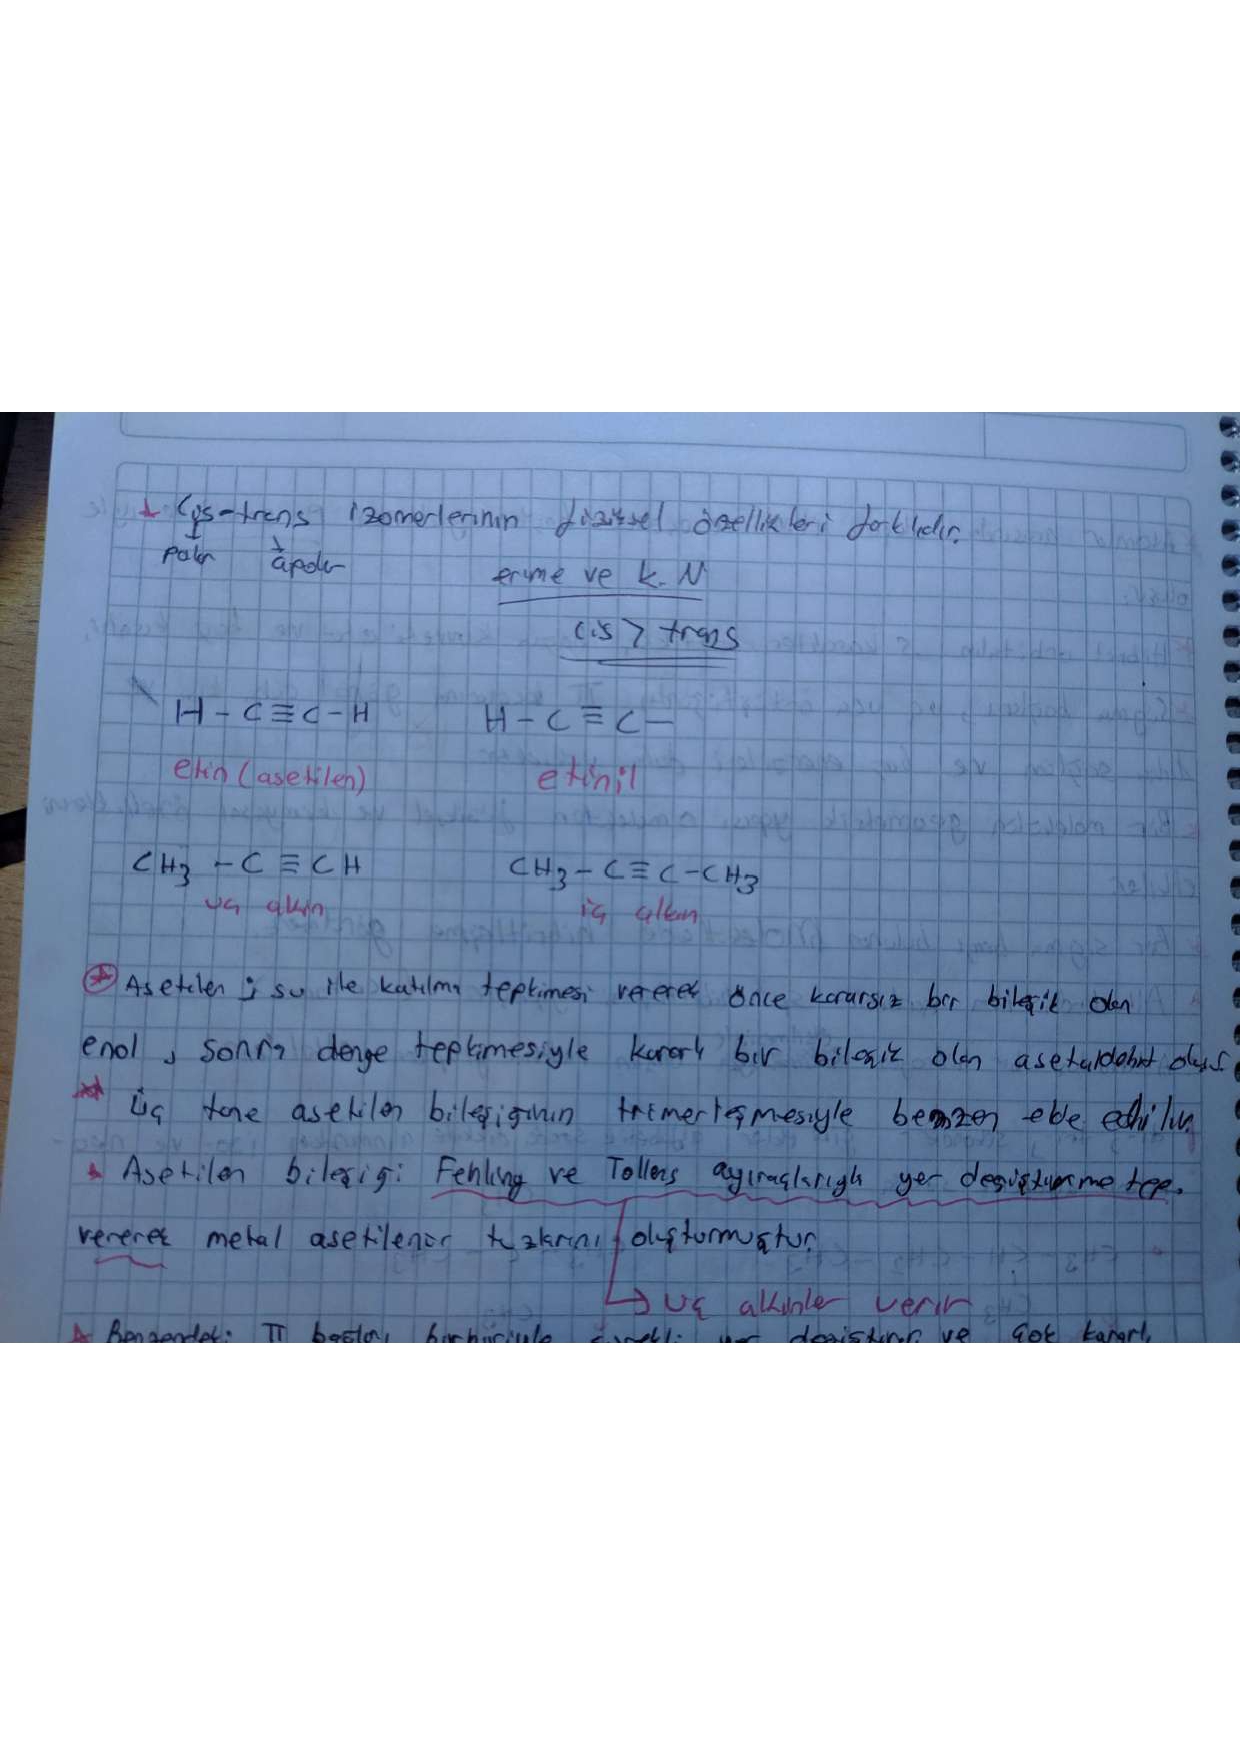 Cys-trans izomerlerinin fiziksel özellikleri farklıdır.
polar apolar
erime ve k.N
cis > trans
H-C≡C-H H-C≡C-
etin (asetilen) etinil
CH3-C≡CH CH3-C≡C-CH3
uç alkin iç alkin
Asetilen ; su ile katılma tepkimesi vererek önce kararsız bir bileşik olan
enol, sonra denge tepkimesiyle kararlı bir bileşik olan asetaldehit oluşur
Üç tane asetilen bileşiğinin trimerleşmesiyle benzen elde edilir.
Asetilen bileşiği Fehling ve Tollens ayıraçlarıyla yer değiştirme tep.
vererek metal asetilenür tuzlarını oluşturmuştur.
uç alkinler verir
Benzendeki π bağları birbiriyle sürekli yer değiştirir ve çok kararlı